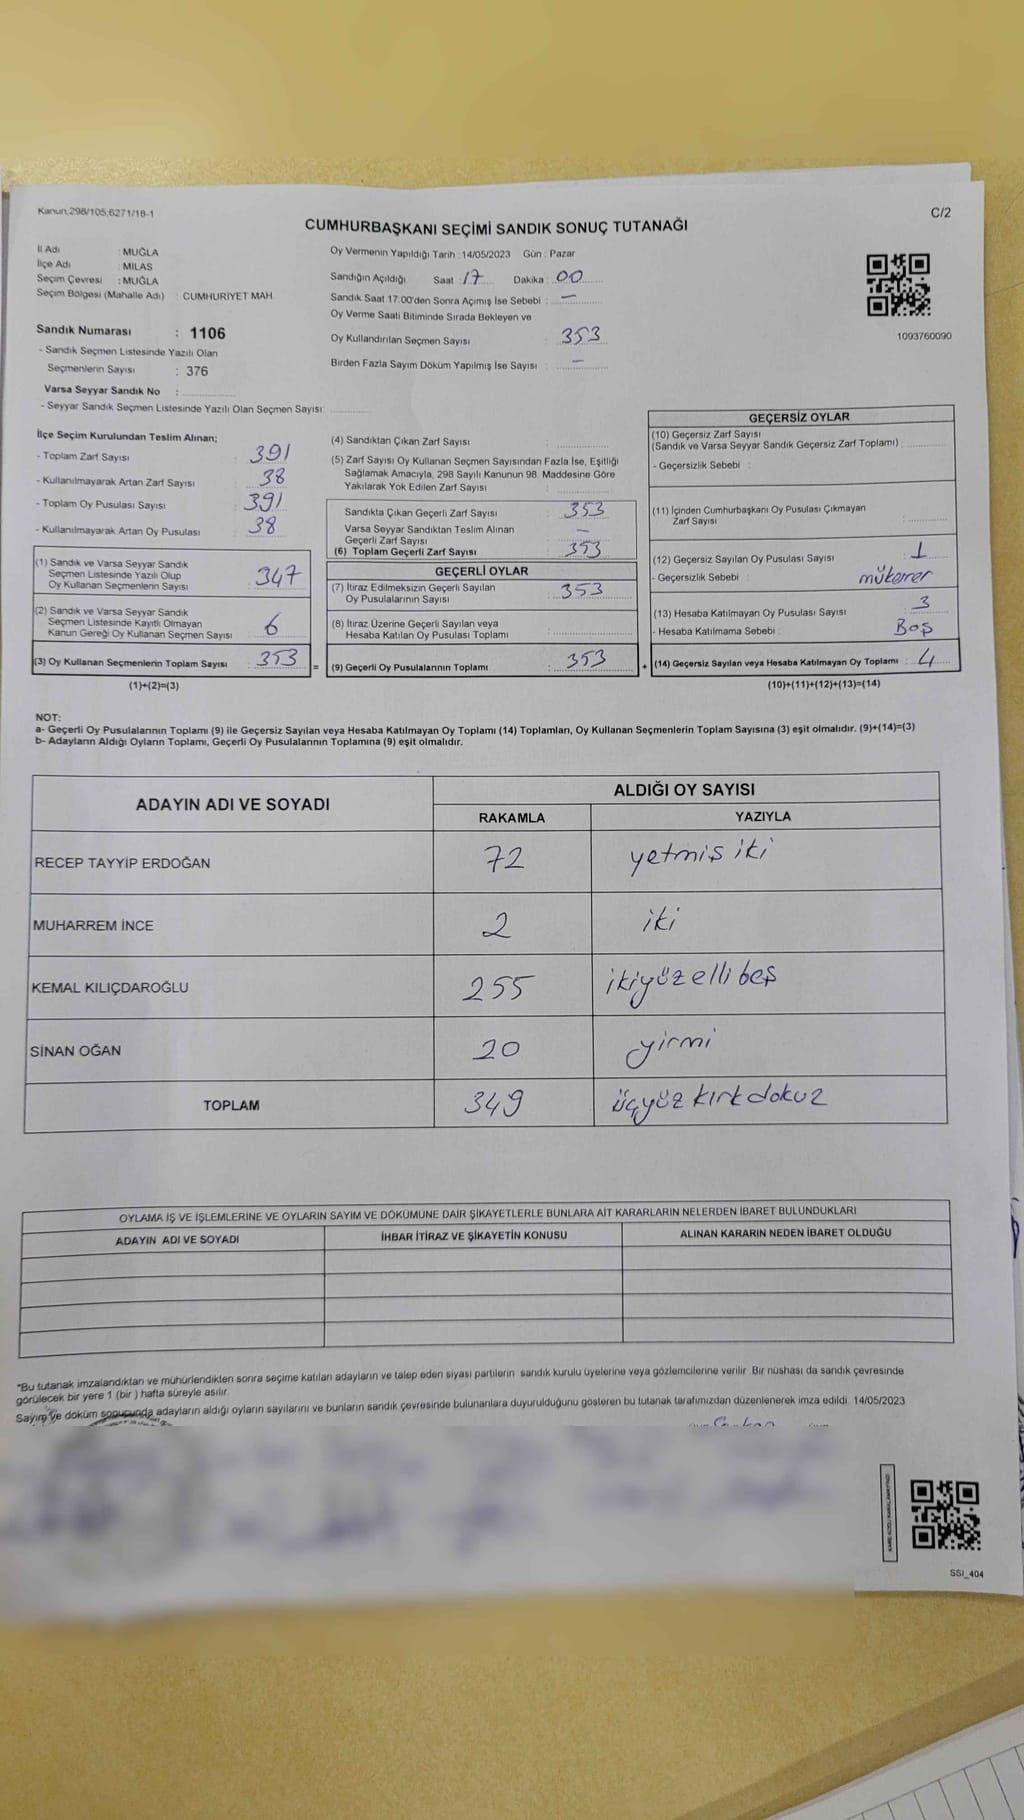 Kanun,298/105;6271/18-1
C/2
CUMHURBAŞKANI SEÇİMİ SANDIK SONUÇ TUTANAĞI
İl Adı : MUĞLA
İlçe Adı : MİLAS
Seçim Çevresi : MUĞLA
Seçim Bölgesi (Mahalle Adı) : CUMHURİYET MAH.
Sandık Numarası : 1106
- Sandık Seçmen Listesinde Yazılı Olan
Seçmenlerin Sayısı : 376
Varsa Seyyar Sandık No :
- Seyyar Sandık Seçmen Listesinde Yazılı Olan Seçmen Sayısı:
Oy Vermenin Yapıldığı Tarih : 14/05/2023 Gün : Pazar
Sandığın Açıldığı Saat : 17 Dakika : 00
Sandık Saat 17:00'den Sonra Açımış İse Sebebi : —
Oy Verme Saati Bitiminde Sırada Bekleyen ve
Oy Kullandırılan Seçmen Sayısı : 353
Birden Fazla Sayım Döküm Yapılmış İse Sayısı : —
1093760090
İlçe Seçim Kurulundan Teslim Alınan;
- Toplam Zarf Sayısı : 391
- Kullanılmayarak Artan Zarf Sayısı : 38
- Toplam Oy Pusulası Sayısı : 391
- Kullanılmayarak Artan Oy Pusulası : 38
(1) Sandık ve Varsa Seyyar Sandık
Seçmen Listesinde Yazılı Olup
Oy Kullanan Seçmenlerin Sayısı : 347
(2) Sandık ve Varsa Seyyar Sandık
Seçmen Listesinde Kayıtlı Olmayan
Kanun Gereği Oy Kullanan Seçmen Sayısı : 6
(3) Oy Kullanan Seçmenlerin Toplam Sayısı : 353
(1)+(2)=(3)
(4) Sandıktan Çıkan Zarf Sayısı :
(5) Zarf Sayısı Oy Kullanan Seçmen Sayısından Fazla İse, Eşitliği
Sağlamak Amacıyla, 298 Sayılı Kanunun 98. Maddesine Göre
Yakılarak Yok Edilen Zarf Sayısı :
Sandıkta Çıkan Geçerli Zarf Sayısı : 353
Varsa Seyyar Sandıktan Teslim Alınan
Geçerli Zarf Sayısı : —
(6) Toplam Geçerli Zarf Sayısı : 353
GEÇERLİ OYLAR
(7) İtiraz Edilmeksizin Geçerli Sayılan
Oy Pusulalarının Sayısı : 353
(8) İtiraz Üzerine Geçerli Sayılan veya
Hesaba Katılan Oy Pusulası Toplamı :
= (9) Geçerli Oy Pusulalarının Toplamı : 353
GEÇERSİZ OYLAR
(10) Geçersiz Zarf Sayısı
(Sandık ve Varsa Seyyar Sandık Geçersiz Zarf Toplamı) :
- Geçersizlik Sebebi :
(11) İçinden Cumhurbaşkanı Oy Pusulası Çıkmayan
Zarf Sayısı :
(12) Geçersiz Sayılan Oy Pusulası Sayısı : 1
- Geçersizlik Sebebi : mükerrer
(13) Hesaba Katılmayan Oy Pusulası Sayısı : 3
- Hesaba Katılmama Sebebi : Boş
+ (14) Geçersiz Sayılan veya Hesaba Katılmayan Oy Toplamı : 4
(10)+(11)+(12)+(13)=(14)
NOT:
a- Geçerli Oy Pusulalarının Toplamı (9) ile Geçersiz Sayılan veya Hesaba Katılmayan Oy Toplamı (14) Toplamları, Oy Kullanan Seçmenlerin Toplam Sayısına (3) eşit olmalıdır. (9)+(14)=(3)
b- Adayların Aldığı Oyların Toplamı, Geçerli Oy Pusulalarının Toplamına (9) eşit olmalıdır.
ADAYIN ADI VE SOYADI
ALDIĞI OY SAYISI
RAKAMLA YAZIYLA
RECEP TAYYİP ERDOĞAN 72 yetmiş iki
MUHARREM İNCE 2 iki
KEMAL KILIÇDAROĞLU 255 ikiyüz elli beş
SİNAN OĞAN 20 yirmi
TOPLAM 349 üçyüz kırk dokuz
OYLAMA İŞ VE İŞLEMLERİNE VE OYLARIN SAYIM VE DÖKÜMÜNE DAİR ŞİKAYETLERLE BUNLARA AİT KARARLARIN NELERDEN İBARET BULUNDUKLARI
ADAYIN ADI VE SOYADI İHBAR İTİRAZ VE ŞİKAYETİN KONUSU ALINAN KARARIN NEDEN İBARET OLDUĞU
*Bu tutanak imzalandıktan ve mühürlendikten sonra seçime katılan adayların ve talep eden siyasi partilerin sandık kurulu üyelerine veya gözlemcilerine verilir. Bir nüshası da sandık çevresinde
görülecek bir yere 1 (bir ) hafta süreyle asılır.
Sayım ve döküm sonucunda adayların aldığı oyların sayılarını ve bunların sandık çevresinde bulunanlara duyurulduğunu gösteren bu tutanak tarafımızdan düzenlenerek imza edildi. 14/05/2023
SSI_404